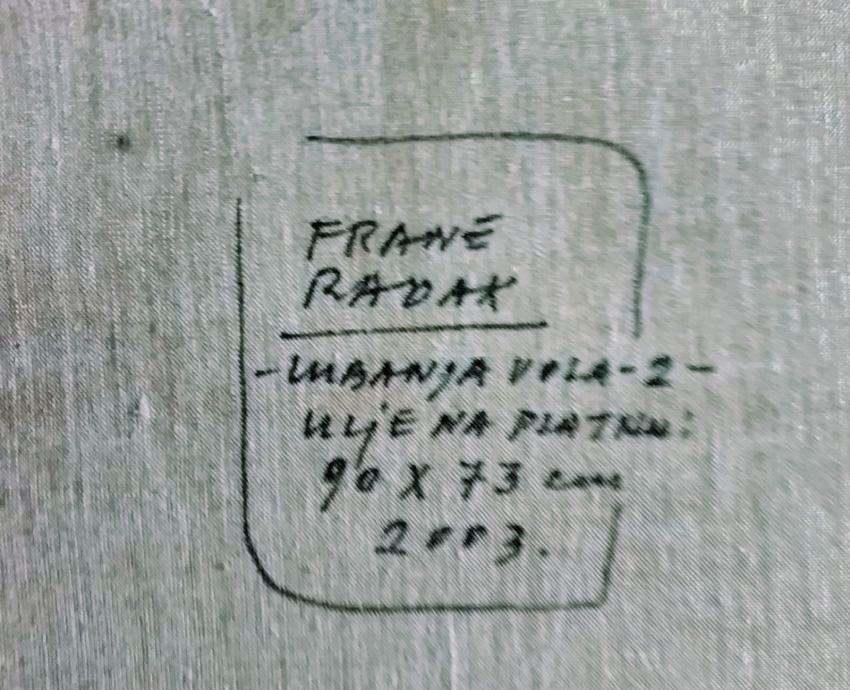 FRANE
RADAK
-LUBANJA VOLA-2-
ULJE NA PLATNU:
90 X 73 cm
2003.